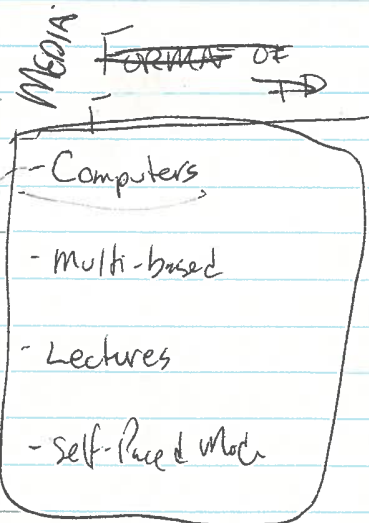 MEDIA
Format of
PD
- Computers
- Multi-based
- Lectures
- Self-Paced Mod